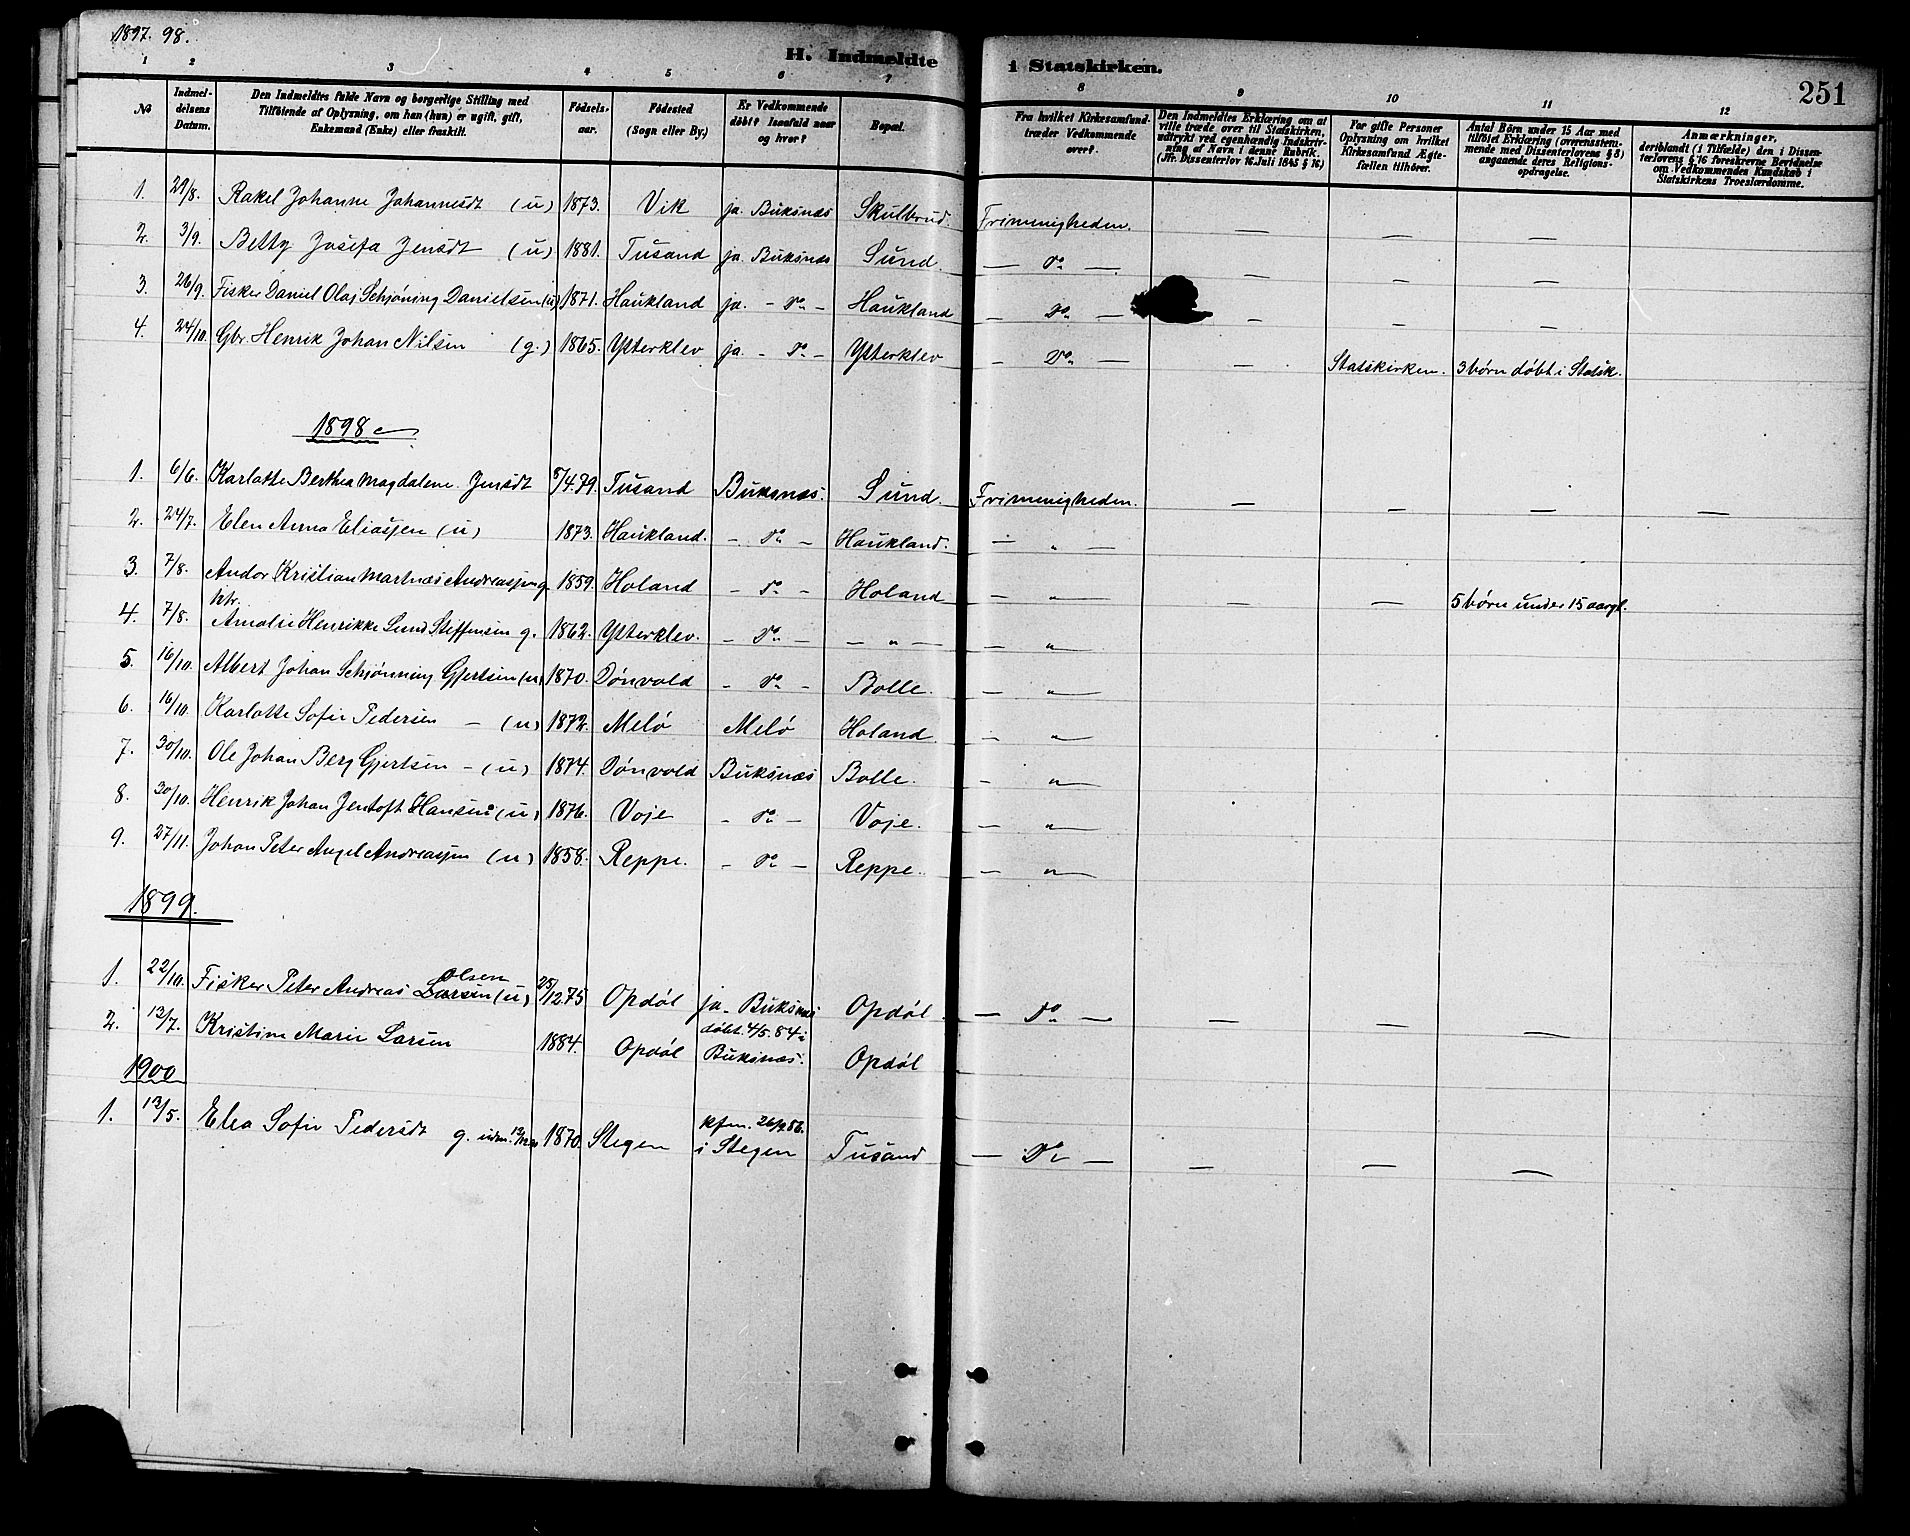 1897. 98.
H. Indmeldte i Statskirken.
251
1 2 3 4 5 6 7 8 9 10 11 12
No
Indmel-
delsens
Datum.
Den Indmeldtes fulde Navn og borgerlige Stilling med
Tilføiende af Oplysning, om han (hun) er ugift, gift,
Enkemand (Enke) eller fraskilt.
Fødsels-
aar.
Fødested
(Sogn eller By.)
Er Vedkommende
døbt? Isaafald naar
og hvor?
Bopæl.
Fra hvilket Kirkesamfund
træder Vedkommende
over?
Den Indmeldtes Erklæring om at
ville træde over til Statskirken,
udtrykt ved egenhændig Indskriv-
ning af Navn i denne Rubrik.
(Jfr. Dissenterlov 16. Juli 1845 § 16)
For gifte Personer
Oplysning om hvilket
Kirkesamfund Ægte-
fællen tilhører.
Antal Børn under 15 Aar med
tilføiet Erklæring (overensstem-
mende med Dissenterlovens § 8)
angaaende deres Religions-
opdragelse.
Anmærkninger,
deriblandt (i Tilfælde) den i Dissen-
terlovens § 16 foreskrevne Bevidnelse
om Vedkommendes Kundskab i
Statskirkens Troeslærdomme.
1. 29/8. Rakel Johanne Johannesdt (u) 1873. Vik ja. Buksnæs Skulbrud. Frimenigheden. — — —
2. 3/9. Betty Josefa Jensdt (u) 1881. Tusand ja. Buksnæs Sund. — Do — — — —
3. 26/9. Fisker Daniel Olaj Schjøning Danielsen (u) 1871. Haukland ja. - Do - Haukland — Do — — — —
4. 24/10. Gbr. Henrik Johan Nilsen (g.) 1865. Ytterklev ja. - Do - Ytterklev - Do — — Statskirken. 3 børn døbt i Statsk.
1898
1. 6/6. Karlotte Berthea Magdalene Jensdt /4.79. Tusand Buksnæs. Sund. Frimenigheden. — — — —
2. 24/7. Elen Anna Eliassen (u) 1873. Haukland. - Do - Haukland. — " —
3. 7/8. Andor Kristian Martnæs Andreassen g. 1859. Holand - Do - Holand — " — — — 5 børn under 15 aar gl.
4. 7/8. Amalie Henrikke Lund Steffensen g. 1862. Ytterklev. - Do - — " — — " —
5. 16/10. Albert Johan Schjønning Gjertsen (u) 1870. Dønvold - Do - Bolle. — " —
6. 16/10. Karlotte Sofie Pedersen - (u) 1872. Melø Melø Holand. — " —
7. 30/10. Ole Johan Berg Gjertsen - (u) 1874. Dønvold Buksnæs Bolle. - " —
8. 30/10. Henrik Johan Jentoft Hansen (u) 1876. Voje - Do - Voje. — " —
9. 27/11. Johan Peter Angel Andreassen (u) 1858. Reppe. - Do — Reppe. — " —
1899.
1. 22/10. Fisker Peter Andreas Olsen Larsen (u) 25/12.75 Opdøl ja. Buksnæs Opdøl. — Do — — — —
2. 13/7. Kristine Marie Larsen 1884. Opdøl døbt. 4/5. 84 i Buksnæs. Opdøl
1900
1. 13/5. Elea Sofie Pedersdt g. 1870. Stegen kfm. i Stegen Tusand — Do — — — —